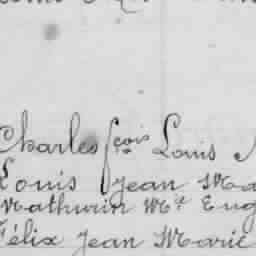 Charles fçois Louis
Louis Jean Ma
Mathurin Mie Eug
Félix Jean Marie